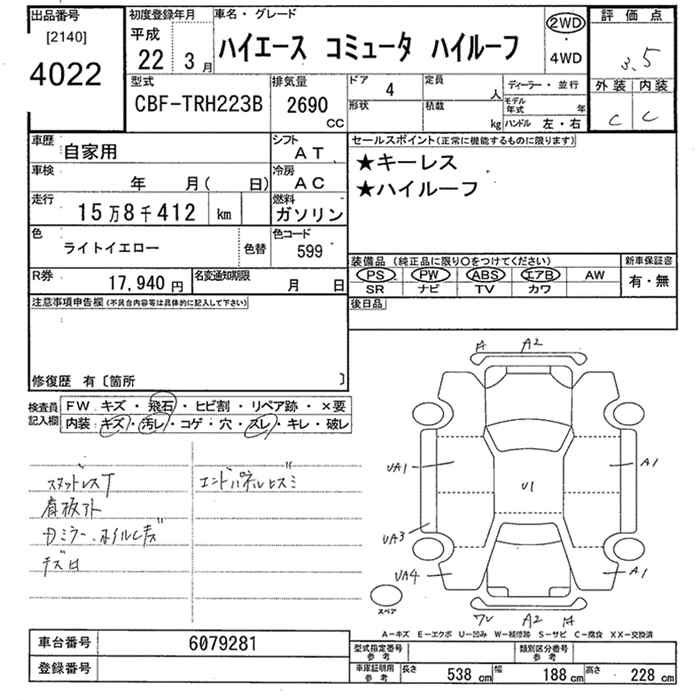 出品番号
[2140]
4022
初度登録年月
平成
22 3月
車名・グレード
ハイエース コミュータ ハイルーフ
2WD
・
4WD
評価点
3.5
外装 内装
C C
型式
CBF-TRH223B
排気量
2690
CC
ドア 4
定員 人
形状
積載 kg
ディーラー・並行
モデル年式 年
ハンドル 左・右
車歴
自家用
シフト
AT
車検
年 月( 日)
冷房
AC
走行
15万8千412 km
燃料
ガソリン
色
ライトイエロー
色替
色コード
599
R券
17,940円
名変通知期限
月 日
セールスポイント(正常に機能するものに限ります)
★キーレス
★ハイルーフ
装備品 (純正品に限り○をつけてください)
PS PW ABS エアB AW
SR ナビ TV カワ
新車保証書
有・無
後日品
注意事項申告欄(不具合内容等は具体的に記入して下さい)
修復歴 有〔箇所 〕
検査員記入欄
FW キズ・飛石・ヒビ割・リペア跡・×要
内装:キズ・汚レ・コゲ・穴・ズレ・キレ・破レ
スタッドレスT
エンドパネルヒズミ
キズロ
A A2
UA1
U1
A1
UA3
UA4
A1
スペア
ワレ A2
A−キズ E−エクボ U−凹み W−補修跡 S−サビ C−腐食 XX−交換済
車台番号
6079281
登録番号
型式指定番号
参考
類別区分番号
参考
車庫証明用
参考
長さ 538 cm
幅 188 cm
高さ 228 cm